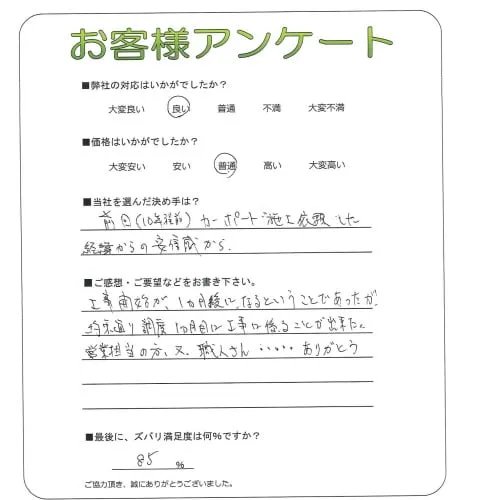 お客様アンケート
■弊社の対応はいかがでしたか？
大変良い 良い 普通 不満 大変不満
■価格はいかがでしたか？
大変安い 安い 普通 高い 大変高い
■当社を選んだ決め手は？
前回(10年程前) カーポート施工依頼した
経緯からの安信感から.
■ご感想・ご要望などをお書き下さい。
工事開始が、1ヵ月後になるということであったが
約束通り 調度 1ヵ月目に工事に係ることが出来た。
営業担当の方、又、職人さん ・・・・・ ありがとう
■最後に、ズバリ満足度は何%ですか？
85 %
ご協力頂き、誠にありがとうございました。